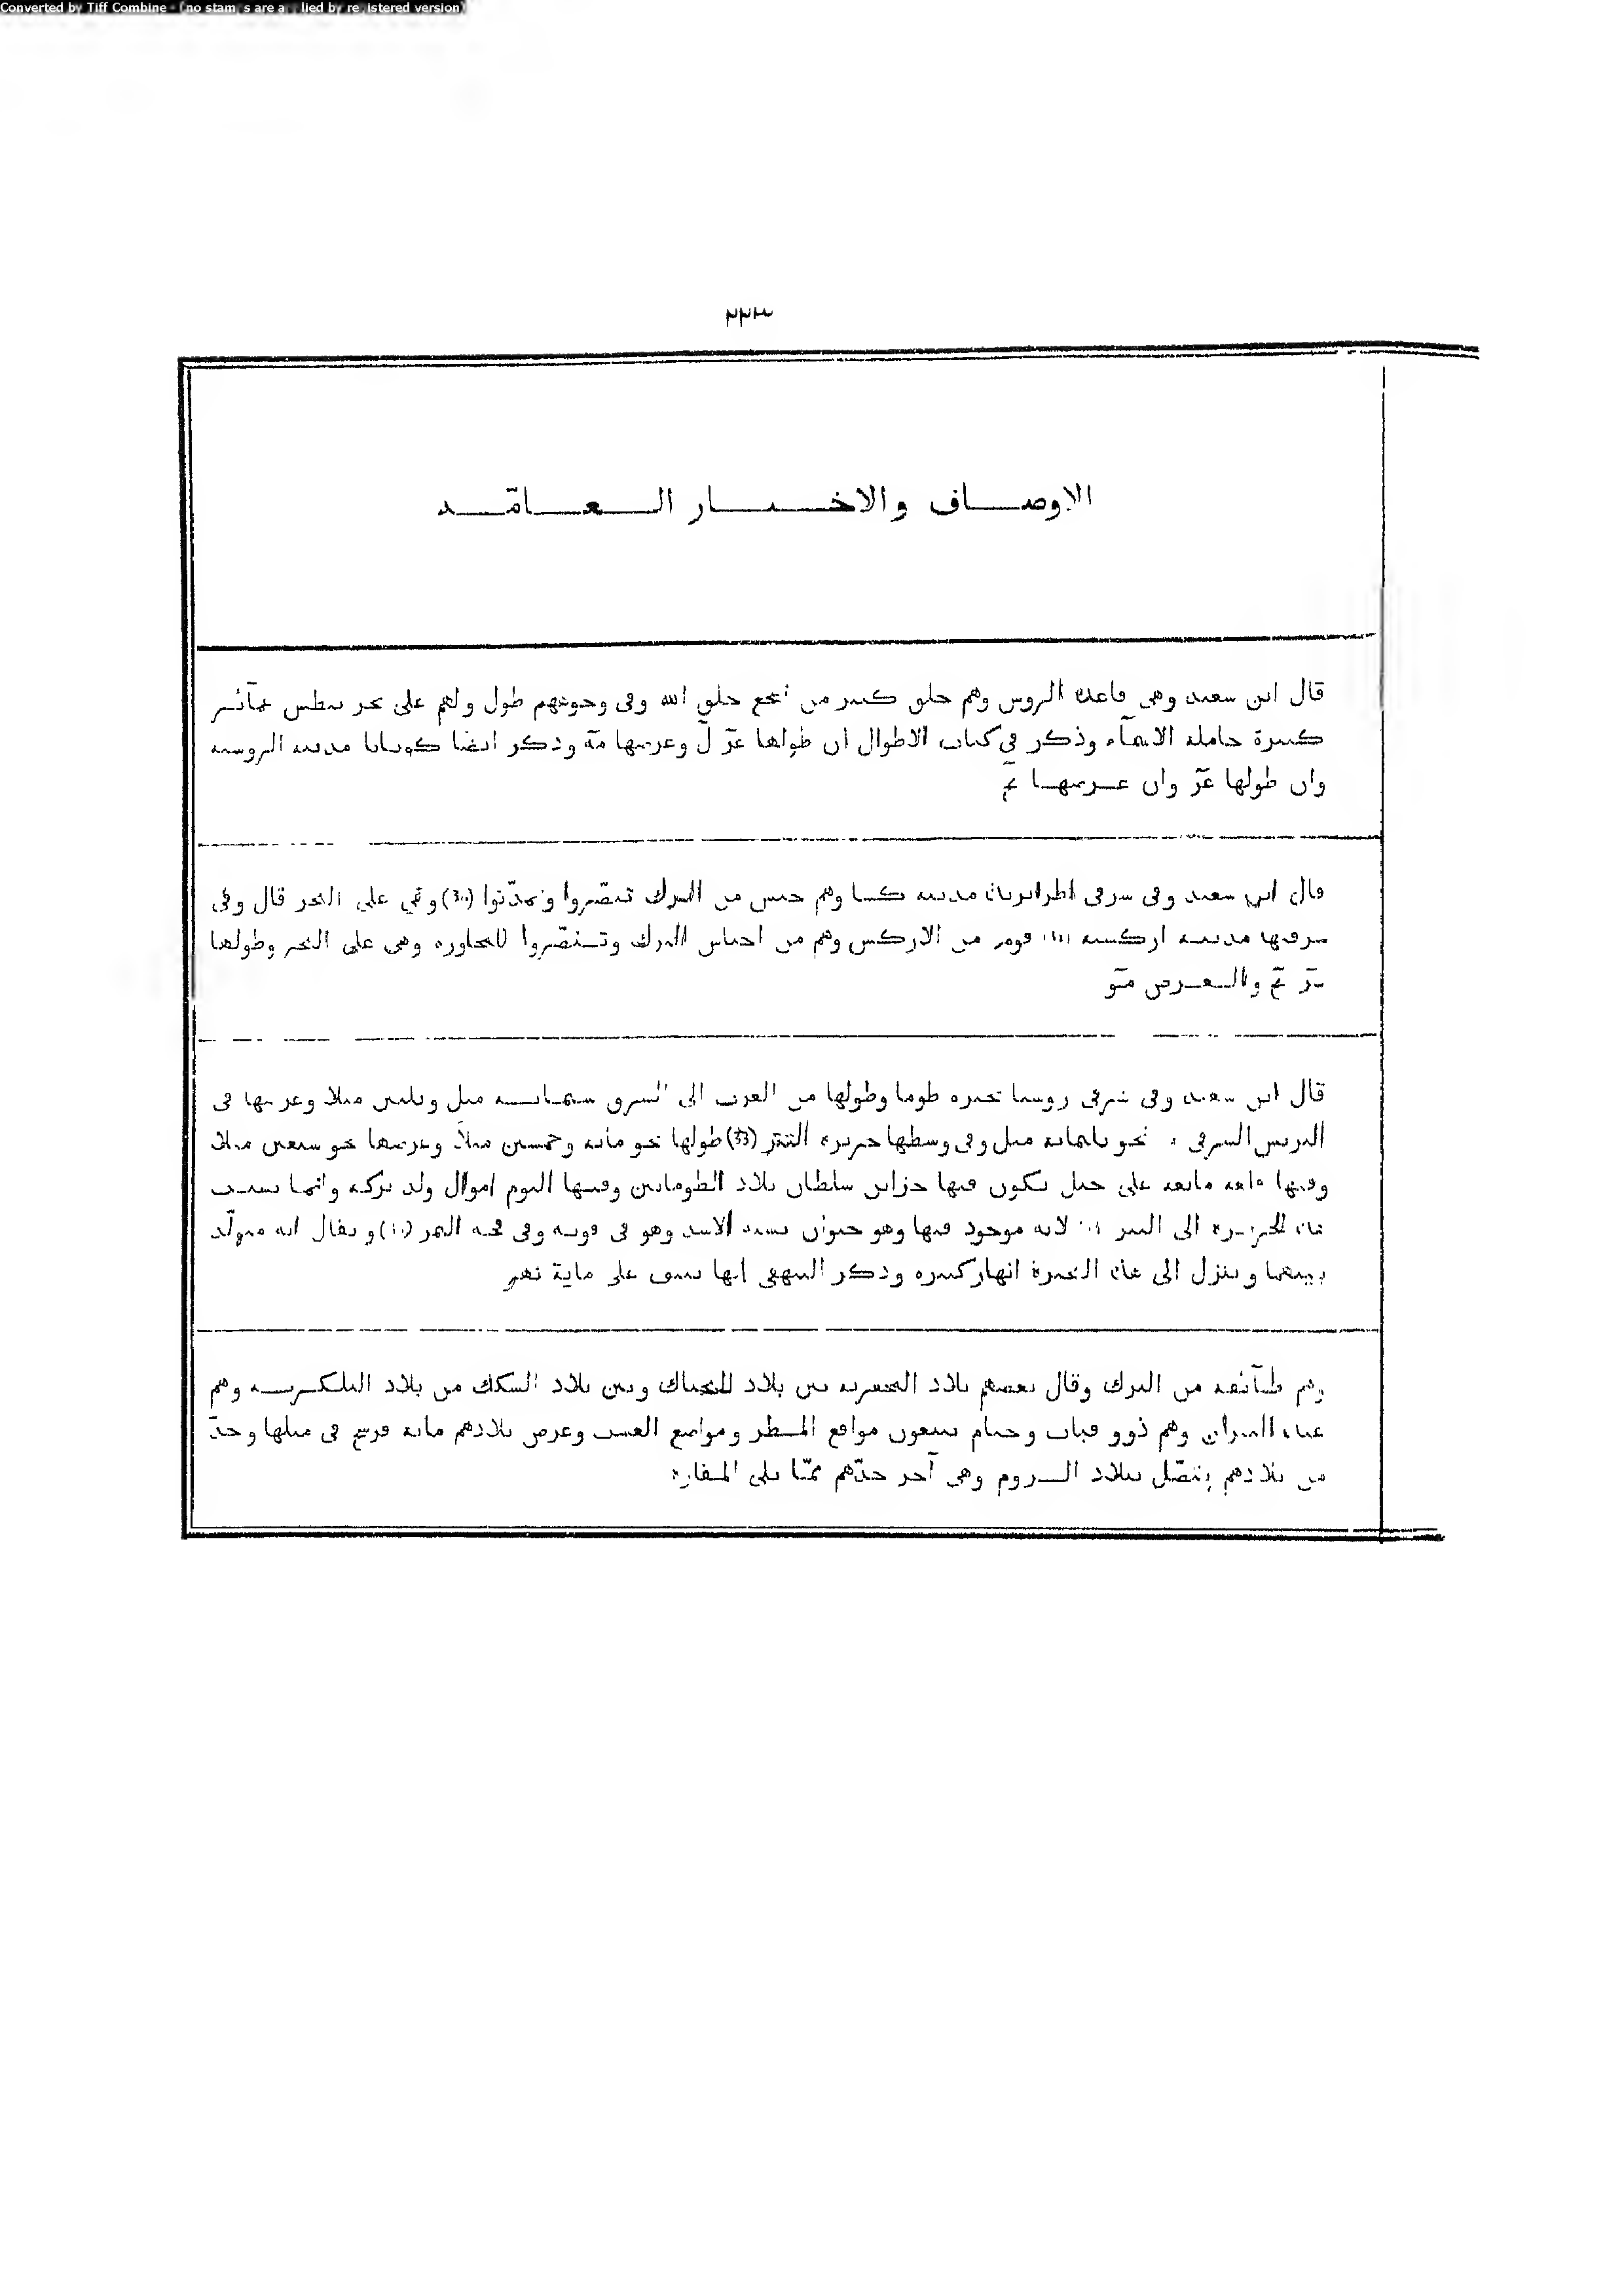 Converted by Tiff Combine - (no stamps are applied by registered version)
٢٢٣
الاوصاف والاخبار العامّة
قال ابن سعيد وهى قاعدة الروس وهم خلق كثير من خلق الله وفى وجوههم طول ولهم على بحر نيطس عمآئر
كثيرة خاملة الاسمآء وذكر فى كتاب الاطوال ان طولها عز ل وعرضها مه وذكر ايضا كويابا مدينة الروسية
وان طولها عز وان عرضها
قال ابن سعيد وفى شرقى اطرابزنك مدينة كسا وهم جنس من الترك تنصّروا وتمدّنوا وهى على البحر قال وفى
شرقيها مدينة ازكشية قوم من الازكش وهم من اجناس الترك وتنصّروا للمجاورة وهى على البحر وطولها
والعرض
قال ابن سعيد وفى شرقى روسيا بحيرة طوما وطولها من الغرب الى الشرق ستمائة ميل وثلثين ميلا وعرضها فى
الشرقى نحو ثلثمائة ميل وفى وسطها جزيرة الببر (33) طولها نحو مائة وخمسين ميلا وعرضها نحو سبعين ميلا
وفيها قلعة مانعة على جبل تكون فيها خزاين سلطان بلاد الطومانيين وفيها اليوم اموال ولد بركه وانما نسبت
هذه الجزيرة الى الببر لانه موجود فيها وهو حيوان يشبه الاسد وهو فى قوته وفى النمر ويقال انه متولّد
بينهما وينزل الى هذه البحيرة انهار كثيرة وذكر البيهقى انها تنيف على ماية نهر
وهم طآئفة من الترك وقال بعضهم بلاد المجغرية بين بلاد البجناك وبين بلاد السكك من بلاد البلكارية وهم
عبدة النيران وهم ذوو قباب وخيام يتبعون مواقع المطر ومواضع العشب وعرض بلادهم مائة فرسخ فى مثلها وحدّ
من بلادهم يتّصل ببلاد الروم وهى آخر حدّهم ممّا يلى المفازة